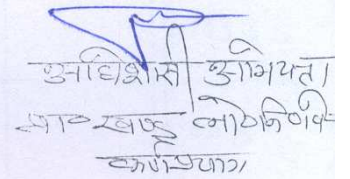 अधिशासी अभियन्ता
प्रा० खण्ड लो०नि०वि०
कर्णप्रयाग